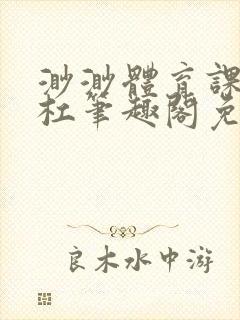 渺渺體育課
杜筆趣閣免
良木水中游